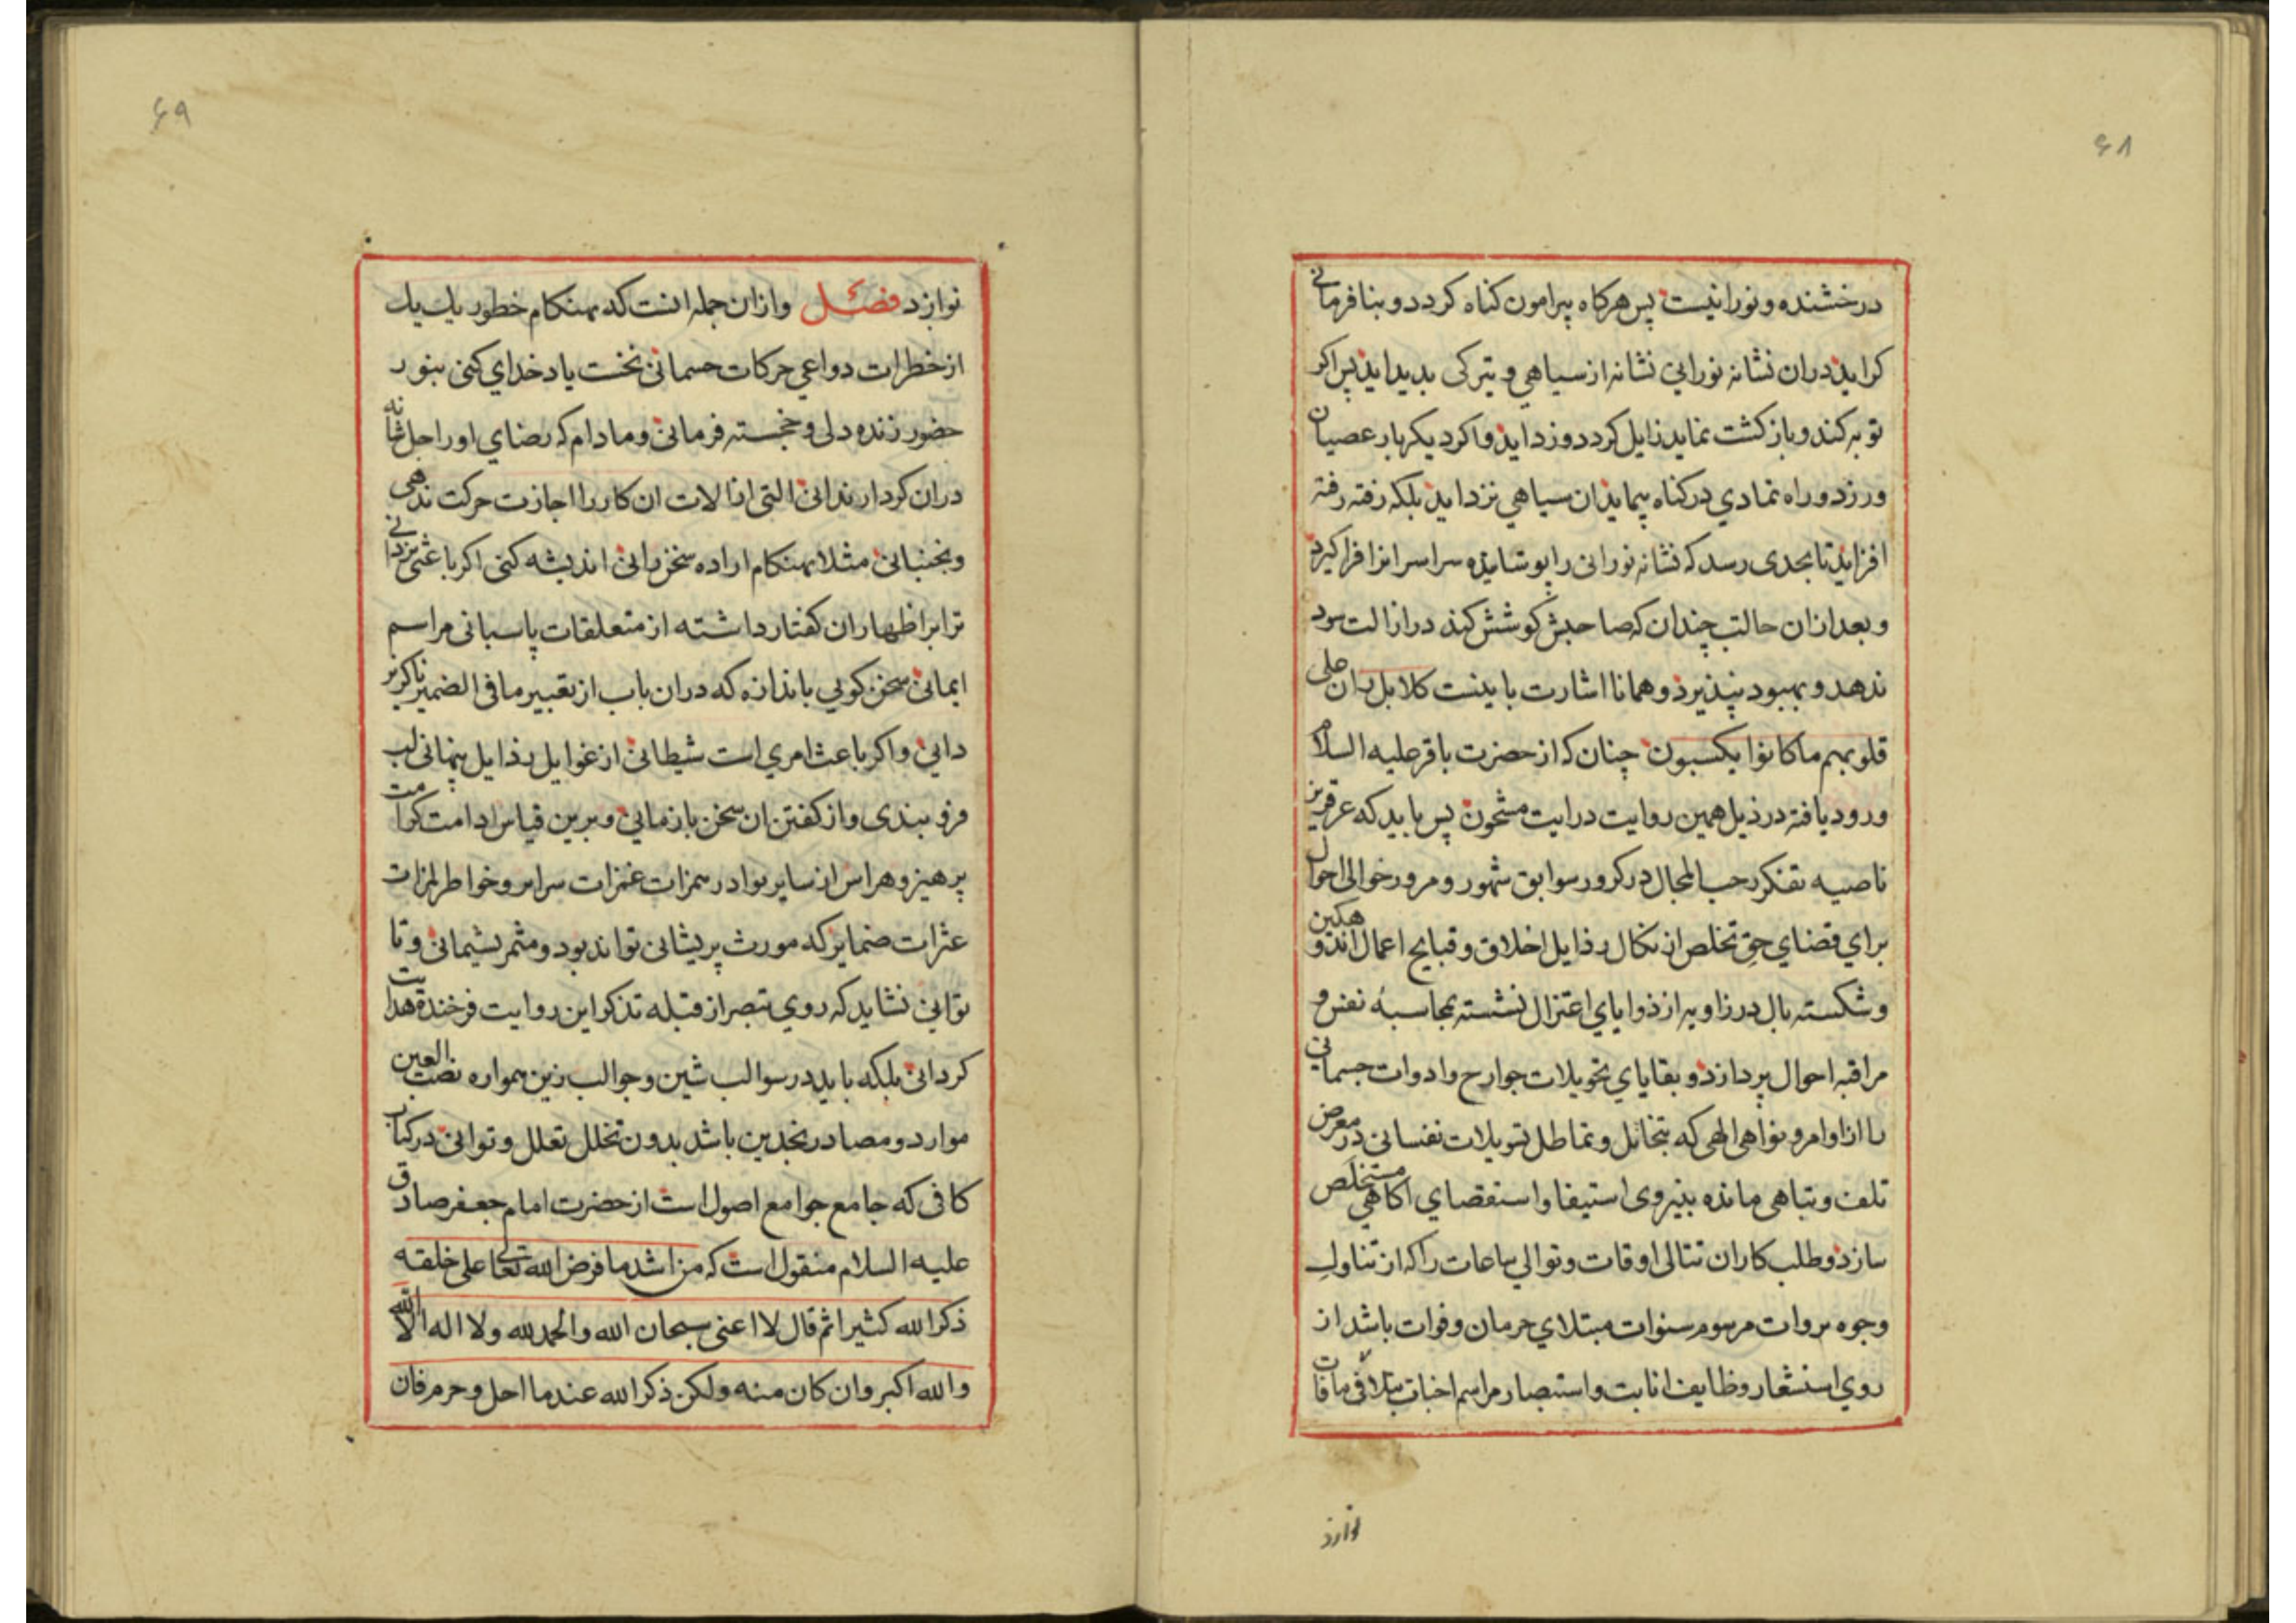 ۶۸
درخشنده و نورانیست پس هرکاه پیرامون کناه کردد و بنافرمانی
کراید دران نشانه نورانی نشانه از سیاهی و تیرکی بدید اید پس اکر
توبه کند و بازکشت نماید زایل کردد و زداید و اکر دیکر بار عصیان
ورزد و راه تمادی در کناه پیماید ان سیاهی نزداید بلکه رفته رفته
افزاید تا بحدی رسد که نشانه نورانی را پوشانیده سراسر انرا فرا کیرد
و بعد ازان حالت چندان که صاحبش کوشش کند در ازالت سود
ندهد و بهبود نپذیرد و همانا اشارت باینست کلا بل ران علی
قلوبهم ما کانوا یکسبون چنان که از حضرت باقر علیه السلام
ورود یافته در ذیل همین روایت درایت مشحون پس باید که عرق ریز
ناصیه تفکر حسب المجال در کرور سوابق شهور و مرور خوالی احوال
برای قضای حق تخلص از نکال رذایل اخلاق و قبایح اعمال اندوهکین
و شکسته بال در زاویه از ذوایای اعتزال نشسته بمحاسبه نفس و
مراقبه احوال پردازد و بقایای تحویلات جوارح و ادوات جسمانی
را از اوامر و نواهی الهی که بتخاتل و تماطل تسویلات نفسانی در معرض
تلف و تباهی مانده بنیروی استیفا و استقصای اکاهی مستخلص
سازد و طلب کاران تتالی اوقات و توالی ساعات را که از تناول
وجوه بروات مرسوم سنوات مبتلای حرمان و فوات باشد از
روی استشعار وظایف انابت و استبصار مراسم اخبات بتلافی ما فات
نوازد
۶۹
نوازد فصل و ازان جمله انست که بهنکام خطور یك یك
از خطرات دواعی حرکات جسمانی نخست یاد خدای کنی بنور
حضور زنده دلی و خجسته فرمانی و مادام که رضای او را جل شانه
دران کردار ندانی التی از الات ان کار را اجازت حرکت ندهی
و بجنبانی مثلا بهنکام اراده سخن رانی اندیشه کنی اکر باعثی یزدانی
ترا بر اظهار ان کفتار داشته از متعلقات پاسبانی مراسم
ایمانی سخن کویی باندازه که دران باب از تعبیر ما فی الضمیر ناکزیر
دانی و اکر باعث امری است شیطانی از غوایل رذایل پنهانی لب
فرو بندی و از کفتن ان سخن باز مانی و برین قیاس ادامت کرامت
پرهیز و هراس از سایر بوادر رمزات غمزات سرایر و خواطر لمزات
عثرات ضمایر که مورث پریشانی تواند بود و مثمر پشیمانی و تا
توانی نشاید که روی تبصر از قبله تذکر این روایت فرخنده هدایت
کردانی بلکه باید در سوالب شین و جوالب زین همواره نصب العین
موارد و مصادر نجدین باشد بدون تخلل تعلل و توانی در کتاب
کافی که جامع جوامع اصول است از حضرت امام جعفر صادق
علیه السلام منقول است که من اشد ما فرض الله تعالی علی خلقه
ذکر الله کثیرا ثم قال لا اعنی سبحان الله والحمد لله ولا اله الا الله
والله اکبر وان کان منه ولکن ذکر الله عند ما احل وحرم فان